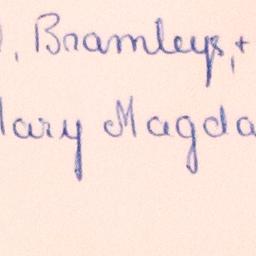 , Bramleys, +
Mary Magda